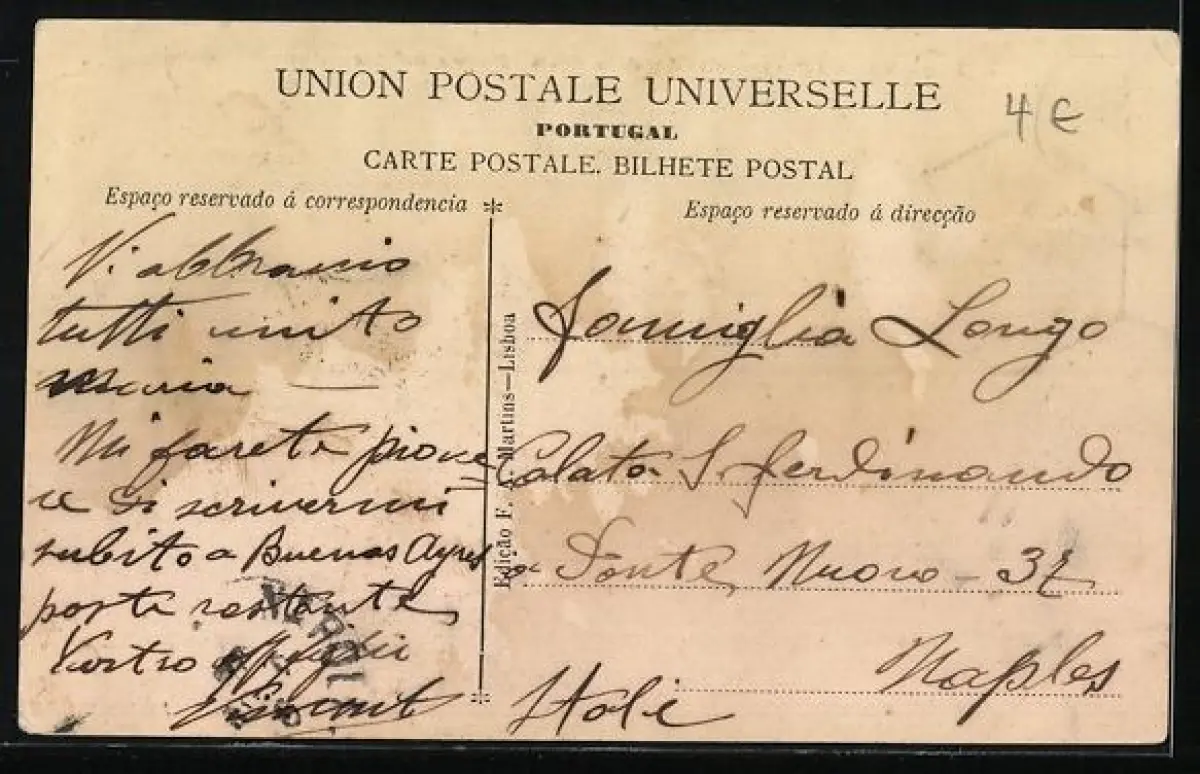 UNION POSTALE UNIVERSELLE
4 €
PORTUGAL
CARTE POSTALE. BILHETE POSTAL
Espaço reservado á correspondencia
Espaço reservado á direcção
Vi abbraccio
tutti unito
Maria
Mi farete piace
re di scrivermi
subito a Buenos Ayres
poste restante
Vostro
Edição F. Martins—Lisboa
Famiglia Longo
Calata S. Ferdinando
a Ponte Nuovo - 32
Naples
Italie